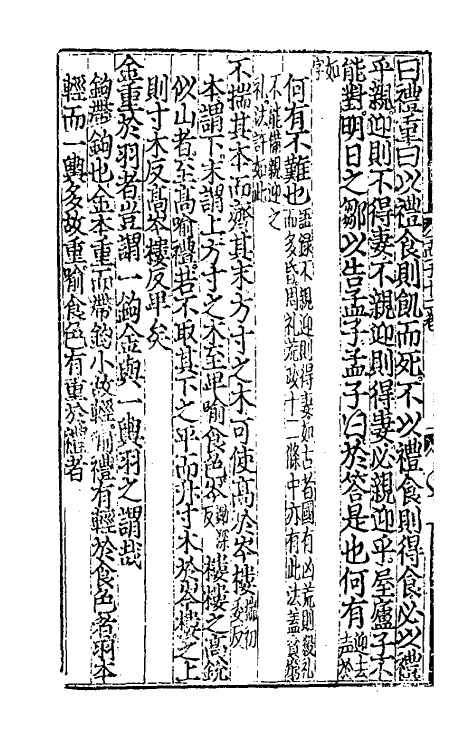 曰禮重曰以禮食則飢而死不以禮食則得食必以禮
乎親迎則不得妻不親迎則得妻必親迎乎屋廬子不
能對明日之鄒以告孟子孟子曰於答是也何有迎去声於
如字
何有不難也
録不親迎則得妻如古者國有凶荒則殺礼
而多昏周礼荒政十二條中亦有此法蓋貧窮
不能備親迎之
礼法許如此
不揣其本而齊其末方寸之木可使髙於岑樓揣初委反
本謂下末謂上方寸之木至卑喻食色岑鋤深反樓樓之髙銳
似山者至髙喻禮若不取其下之平而升寸木於岑樓之上
則寸木反髙岑樓反卑矣
金重於羽者豈謂一鉤金與一輿羽之謂哉
鉤帶鉤也金本重而帶鉤小故輕喻禮有輕於食色者羽本
輕而一輿多故重喻食色有重於禮者